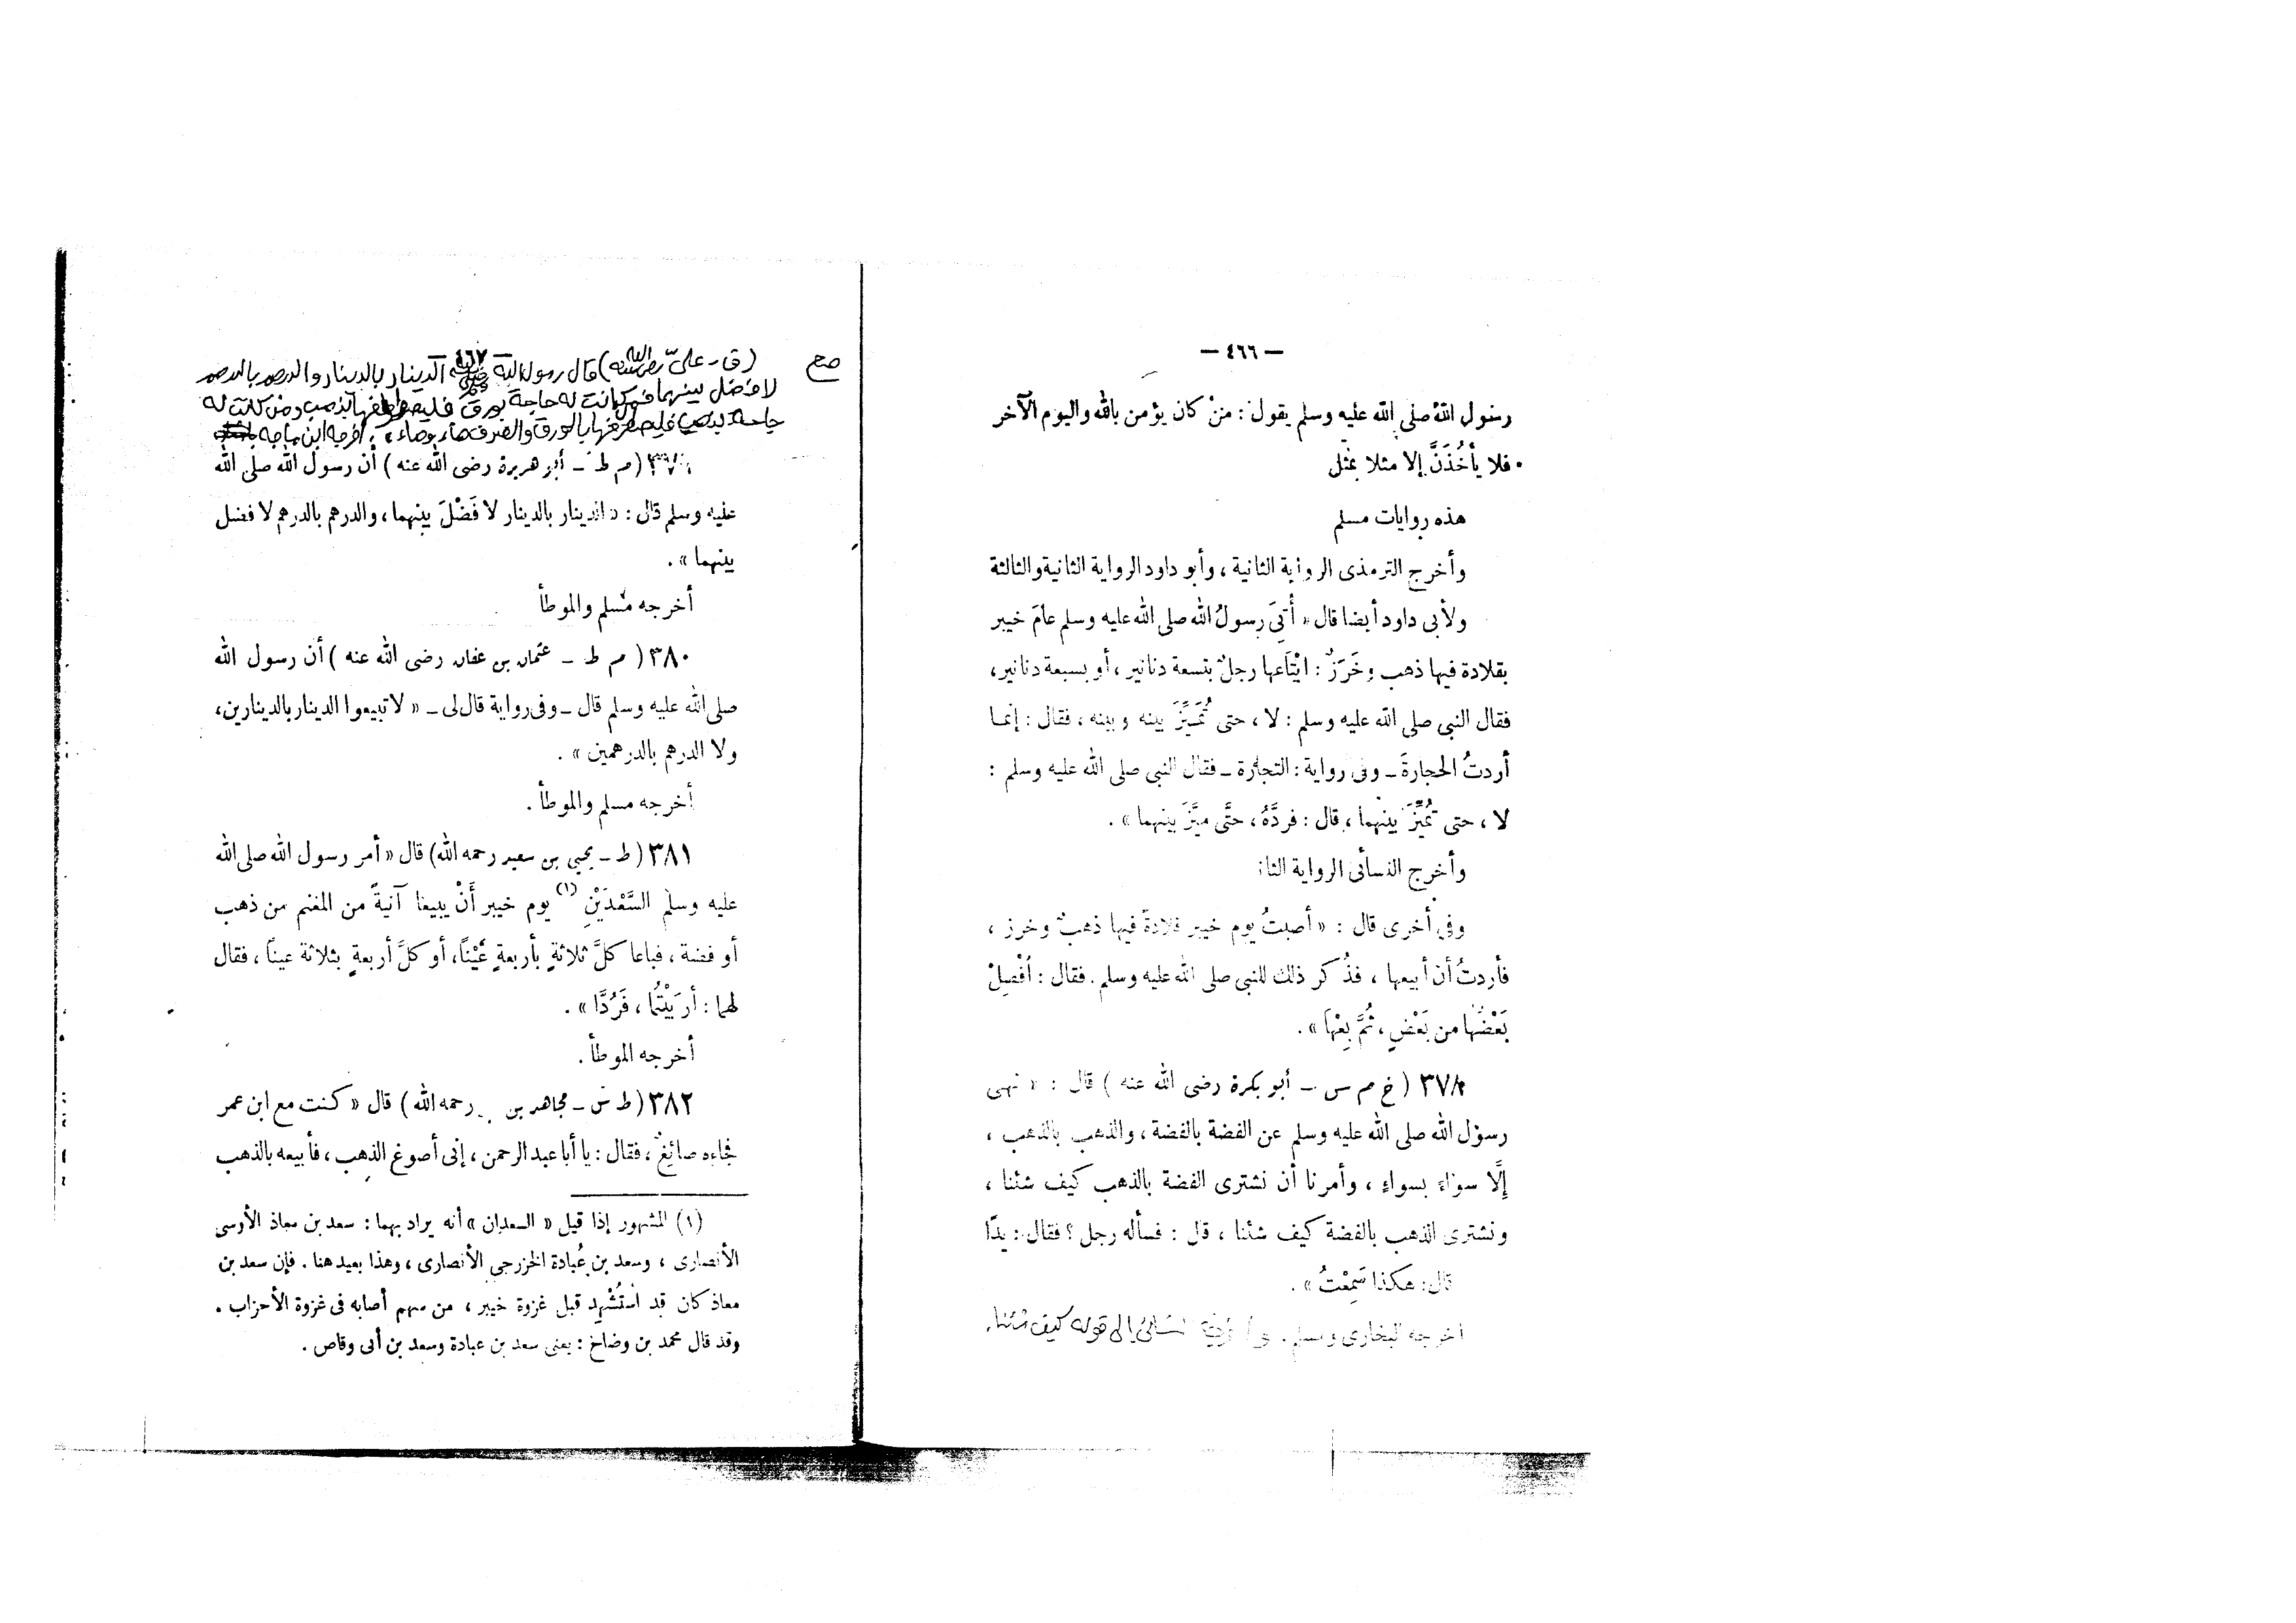 — ٤٦٦ —
رسول الله صلى الله عليه وسلم يقول : منْ كان يؤمن بالله واليوم الآخر
فلا يأخُذَنَّ إلا مثلا بمثل
هذه روايات مسلم
وأخرج الترمذى الرواية الثانية ، وأبو داود الرواية الثانية والثالثة
ولأبى داود أيضا قال « أُتِىَ رسولُ الله صلى الله عليه وسلم عامَ خيبر
بقلادة فيها ذهب وخَرَزٌ : ابْتَاعها رجلٌ بتسعة دنانير ، أو بسبعة دنانير ،
فقال النبى صلى الله عليه وسلم : لا ، حتى تُمَيِّزَ بينه وبينه ، فقال : إنما
أردتُ الحجارةَ ــ وفى رواية : التجارة ــ فقال النبى صلى الله عليه وسلم :
لا ، حتى تُمَيِّزَ بينهما ، قال : فردَّهُ ، حتَّى ميَّزَ بينهما » .
وأخرج النسائى الرواية
وفى أخرى قال : « أصبتُ يوم خيبر قلادةً فيها ذهبٌ وخرز ،
فأردتُ أن أبيعها ، فذُكر ذلك للنبى صلى الله عليه وسلم . فقال : افْصِلْ
بَعْضَها من بَعْضٍ ، ثُمَّ بِعْها » .
٣٧٨ ( خ م س ــ أبو بكرة رضى الله عنه ) قال : « نهى
رسول الله صلى الله عليه وسلم عن الفضة بالفضة ، والذهب بالذهب ،
إلَّا سواءً بسواءٍ ، وأمرنا أن نشترى الفضة بالذهب كيف شئنا ،
ونشترى الذهب بالفضة كيف شئنا ، قال : فسأله رجل ؟ فقال : يدًا
قال : هكذا سَمِعْتُ » .
أخرجه البخارى ومسلم . إلى قوله كيف شئنا .
— ٤٦٧ —
صح
(ق - علىّ رضى الله عنه) قال رسول الله صلى الله عليه وسلم الدينار بالدينار والدرهم بالدرهم
لا فضل بينهما فمن كانت له حاجة بورق فليصطرفها بذهب ومن كانت له
حاجة بذهب فليصطرفها بالورق والصرف هاء وهاء» . أخرجه ابن ماجه
( م ط ــ أبو هريرة رضى الله عنه ) أن رسول الله صلى الله
عليه وسلم قال : « الدينار بالدينار لا فَضْلَ بينهما ، والدرهم بالدرهم لا فضل
بينهما » .
أخرجه مسلم والموطأ
٣٨٠ ( م ط ــ عثمان بن عفان رضى الله عنه ) أن رسول الله
صلى الله عليه وسلم قال ــ وفى رواية قال لى ــ « لا تبيعوا الدينار بالدينارين ،
ولا الدرهم بالدرهمين » .
أخرجه مسلم والموطأ .
٣٨١ ( ط ــ يحيى بن سعيد رحمه الله ) قال « أمر رسول الله صلى الله
عليه وسلم السَّعْدَيْنِ (١) يوم خيبر أَنْ يبيعا آنيةً من المغنم من ذهب
أو فضة ، فباعا كلَّ ثلاثةٍ بأربعةٍ عَيْنًا ، أو كلَّ أربعةٍ بثلاثة عينًا ، فقال
لهما : أرَبَيْتُما ، فَرُدَّا » .
أخرجه الموطأ .
٣٨٢ ( ط س ــ مجاهد بن رحمه الله ) قال « كنت مع ابن عمر
فجاءه صائِغٌ ، فقال : يا أبا عبد الرحمن ، إنى أصوغ الذهب ، فأبيعه بالذهب
(١) المشهور إذا قيل « السعدان » أنه يراد بهما : سعد بن معاذ الأوسى
الأنصارى ، وسعد بن عُبادة الخزرجى الأنصارى ، وهذا بعيد هنا . فإن سعد بن
معاذ كان قد اسْتُشْهِد قبل غزوة خيبر ، من سهم أصابه فى غزوة الأحزاب .
وقد قال محمد بن وضاح : يعنى سعد بن عبادة وسعد بن أبى وقاص .